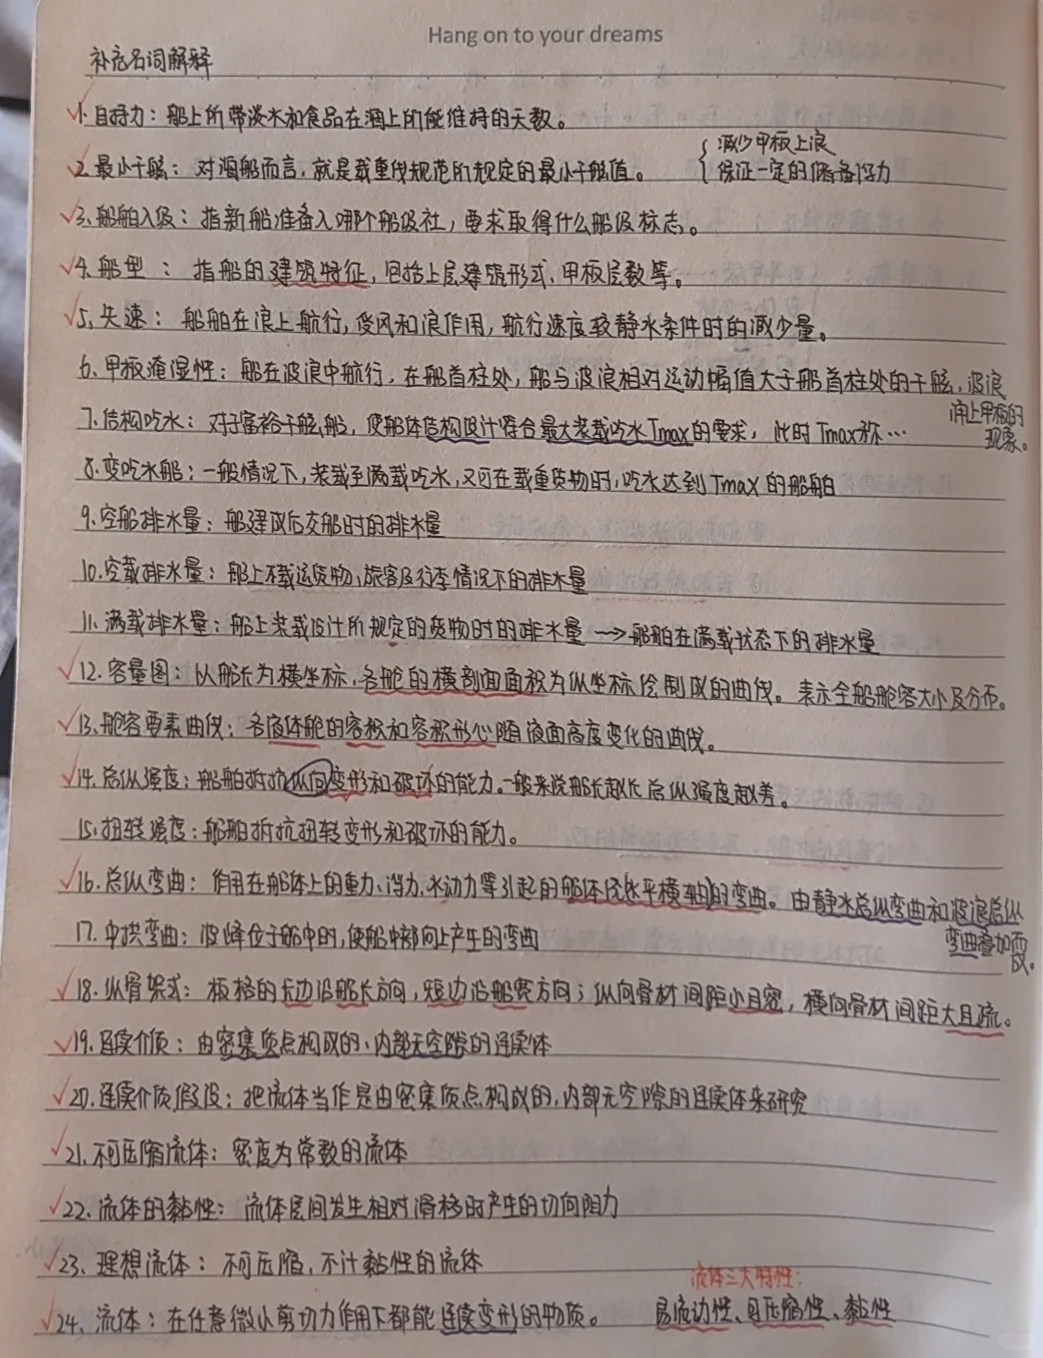 Hang on to your dreams
补充名词解释
1. 自持力：船上所带淡水和食品在海上所能维持的天数。
2. 最小干舷：对海船而言，就是载重线规范所规定的最小干舷值。 { 减少甲板上浪
保证一定的储备浮力
3. 船舶入级：指新船准备入哪个船级社，要求取得什么船级标志。
4. 船型：指船的建筑特征，包括上层建筑形式、甲板层数等。
5. 失速：船舶在浪上航行，受风和浪作用，航行速度较静水条件时的减少量。
6. 甲板淹湿性：船在波浪中航行，在船首柱处，船与波浪相对运动幅值大于船首柱处的干舷，波浪
涌上甲板的
现象。
7. 结构吃水：对于富裕干舷船，使船体结构设计符合最大装载吃水Tmax的要求，此时Tmax称…
8. 变吃水船：一般情况下，装载至满载吃水，又可在载重货物时，吃水达到Tmax的船舶
9. 空船排水量：船建成后交船时的排水量
10. 空载排水量：船上不载运货物、旅客及行李情况下的排水量
11. 满载排水量：船上装载设计所规定的货物时的排水量 → 船舶在满载状态下的排水量
12. 容量图：以船长为横坐标，各舱的横剖面面积为纵坐标绘制成的曲线。表示全船舱容大小及分布。
13. 舱容要素曲线：各液体舱的容积和容积形心随液面高度变化的曲线。
14. 总纵强度：船舶抵抗纵向变形和破坏的能力。一般来说船长越长总纵强度越差。
15. 扭转强度：船舶抵抗扭转变形和破坏的能力。
16. 总纵弯曲：作用在船体上的重力、浮力、水动力等引起的船体绕水平横轴的弯曲。由静水总纵弯曲和波浪总纵
弯曲叠加而
成。
17. 中拱弯曲：波峰位于船中时，使船中部向上产生的弯曲
18. 纵骨架式：板格的长边沿船长方向，短边沿船宽方向；纵向骨材间距小且密，横向骨材间距大且疏。
19. 连续介质：由密集质点构成的、内部无空隙的连续体
20. 连续介质假设：把流体当作是由密集质点构成的，内部无空隙的连续体来研究
21. 不可压缩流体：密度为常数的流体
22. 流体的黏性：流体层间发生相对滑移时产生的切向阻力
23. 理想流体：不可压缩，不计黏性的流体
流体三大特性：
24. 流体：在任意微小剪切力作用下都能连续变形的物质。 易流动性、可压缩性、黏性